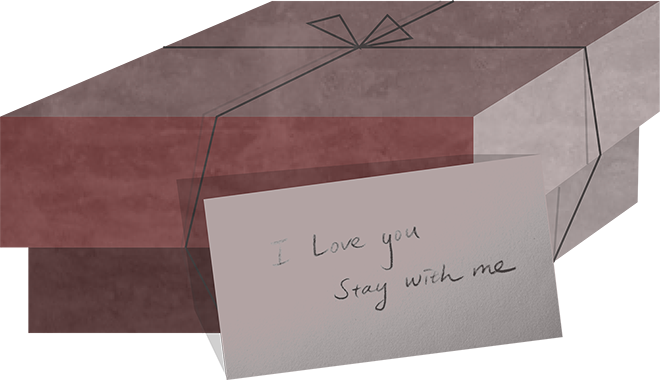 I Love you
Stay with me